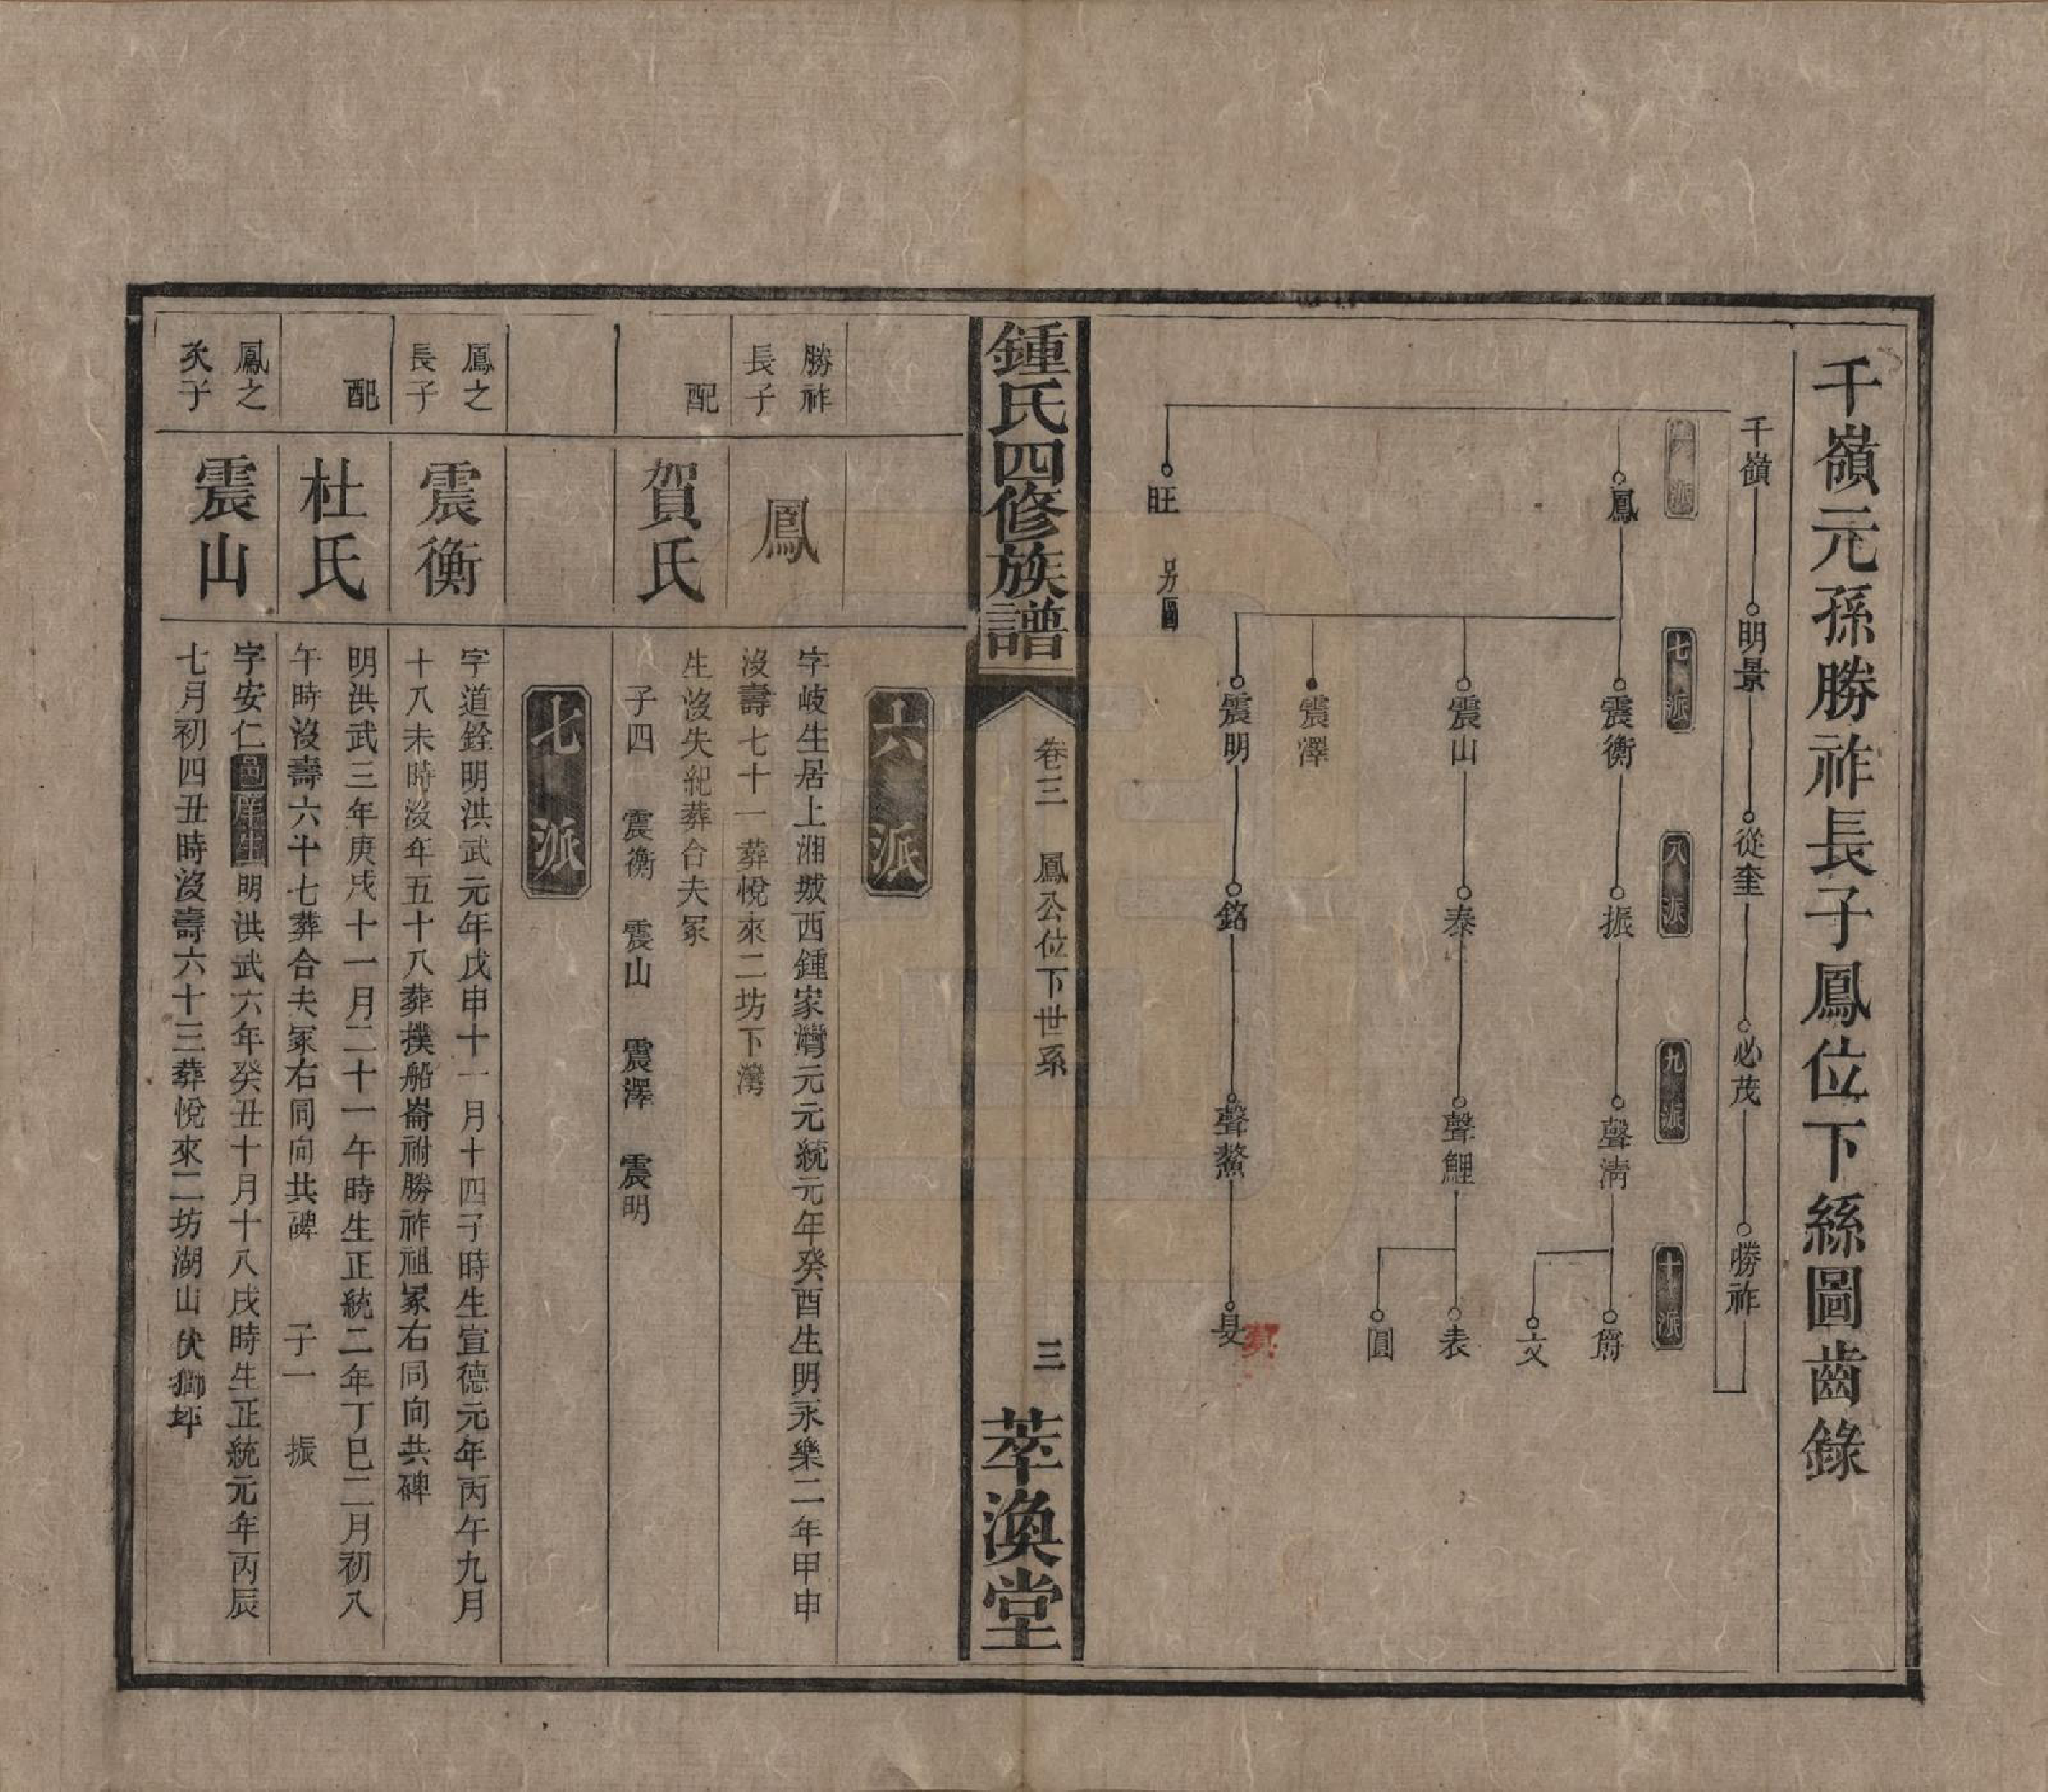 千嶺元孫勝祚長子鳳位下絲圖齒錄
千嶺 明景 從奎 必茂 勝祚
六派 七派 八派 九派 十派
鳳 震衡 振 聲清 爵
文
震山 泰 聲鯉 表
圓
震澤
震明 銘 聲鰲 旻
旺 另圖
鍾氏四修族譜 卷三 鳳公位下世系 三 萃渙堂
六派
勝祚長子
鳳
字岐生居上湘城西鍾家灣元元統元年癸酉生明永樂二年甲申
沒壽七十一葬悅來二坊下灣
配
賀氏
生沒失紀葬合夫冢
子四 震衡 震山 震澤 震明
七派
鳳之長子
震衡
字道銓明洪武元年戊申十一月十四子時生宣德元年丙午九月
十八未時沒年五十八葬撲船崙祔勝祚祖冢右同向共碑
配
杜氏
明洪武三年庚戌十一月二十一午時生正統二年丁巳二月初八
午時沒壽六十七葬合夫冢右同向共碑 子一 振
鳳之次子
震山
字安仁邑庠生明洪武六年癸丑十月十八戌時生正統元年丙辰
七月初四丑時沒壽六十三葬悅來二坊湖山伏獅坪